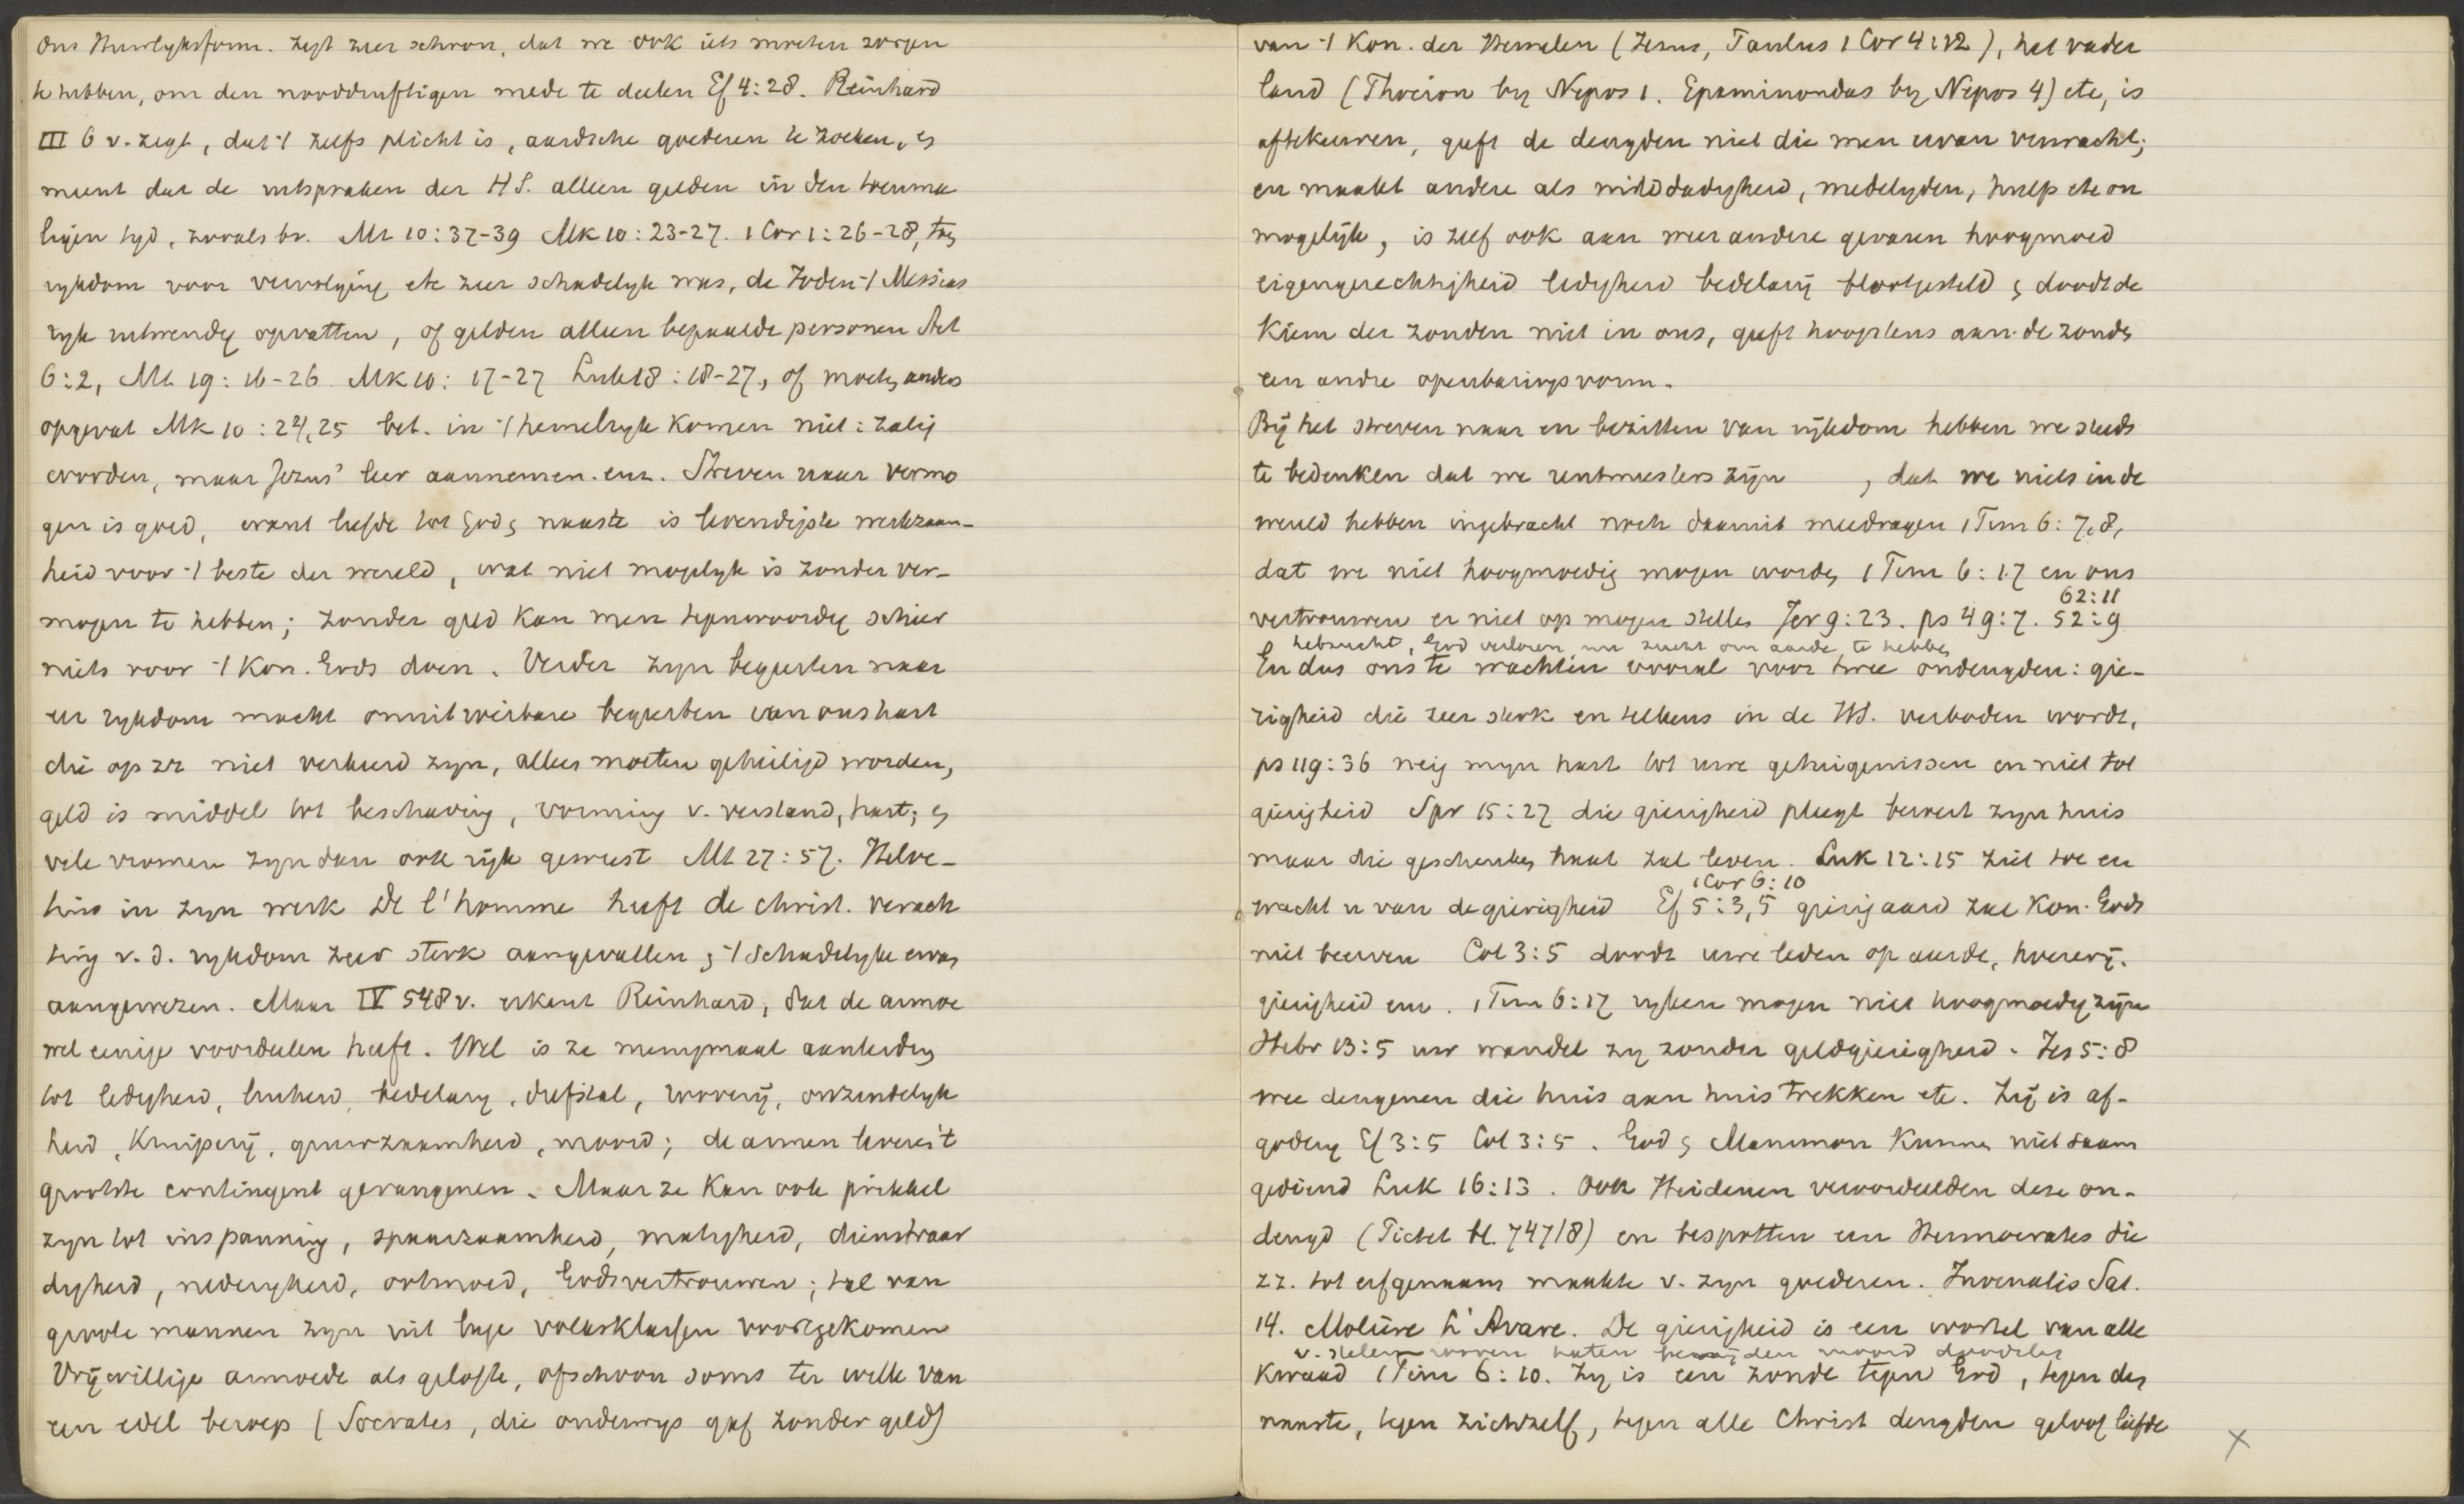 ons Huwlyksform. zegt zeer schoon, dat we ook iets moeten zorgen
te hebben, om den nooddruftigen mede te deelen Ef 4:28. Reinhard
III 6 v. zegt, dat 't zelfs plicht is, aardsche goederen te zoeken, en
meent dat de uitspraken der HS. alleen gelden in den toenma
ligen tyd, zooals bv. Mt 10:37-39 Mk 10:23-27. 1 Cor 1:26-28, toen
rykdom voor vervolging etc zeer schadelyk was, de Joden 't Messias
ryk uitwendig opvatten, of gelden alleen bepaalde personen Act
6:2, Mt 19:16-26 Mk 10:17-27 Luk 18:18-27, of moeten anders
opgevat Mk 10:24,25 bet. in 't hemelryk komen niet: zalig
worden, maar Jezus' leer aannemen. enz. Streven naar vermo
gen is goed, want liefde tot God en naaste is levendigste werkzaam-
heid voor 't beste der wereld, wat niet mogelyk is zonder ver-
mogen te hebben; zonder geld kan men tegenwoordig schier
niets voor 't Kon. Gods doen. Verder zyn begeerten naar
eer rykdom macht onuitwisbare begeerten van ons hart
die op zz niet verkeerd zyn, alleen moeten geheiligd worden,
geld is middel tot beschaving, vorming v. verstand, hart; en
vele vromen zyn dan ook rijk geweest Mt 27:57. Helve-
tius in zyn werk De l'homme heeft de christ. verach
ting v.d. rykdom zeer sterk aangevallen en 't schadelyke ervan
aangewezen. Maar IV 548 v. erkent Reinhard, dat de armoe
wel eenige voordeelen heeft. Wel is ze menigmaal aanleiding
tot ledigheid, luiheid, bedelary, diefstal, roovery, onzindelyk
heid, kruiperij, gruwzaamheid, moord; de armen leveren 't
grootste contingent gevangenen. Maar ze kan ook prikkel
zyn tot inspanning, spaarzaamheid, matigheid, dienstvaar
digheid, nederigheid, ootmoed, Godsvertrouwen; tal van
groote mannen zyn uit lage volksklassen voortgekomen
Vrijwillige armoede als gelofte, ofschoon soms ter wille van
een edel beroep (Socrates, die onderwys gaf zonder geld)
van 't Kon. der Hemelen (Jezus, Paulus 1 Cor 4:12), het vader
land (Phocion by Nepos 1. Epaminondas by Nepos 4) etc, is
aftekeuren, geeft de deugden niet die men ervan verwacht;
en maakt andere als milddadigheid, medelyden, hulp etc on
mogelijk, is zelf ook aan weer andere gevaren hoogmoed
eigengerechtigheid ledigheid bedelarij blootgesteld en doodt de
Kiem der zonden niet in ons, geeft hoogstens aan de zonde
een andre openbaringsvorm.
Bij het streven naar en bezitten van rijkdom hebben we steeds
te bedenken dat we rentmeesters zijn , dat we niets in de
wereld hebben ingebracht noch daaruit meedragen 1 Tim 6:7,8,
dat we niet hoogmoedig mogen worden 1 Tim 6:17 en ons
62:11
vertrouwen er niet op mogen stellen Jer 9:23. ps 49:7. 52:9
hebzucht, God verloren, nu zucht om aarde te hebben
En dus ons te wachten vooral voor twee ondeugden: gie-
righeid die zeer sterk en telkens in de HS. verboden wordt,
ps 119:36 neig myn hart tot uwe getuigenissen en niet tot
gierigheid Spr 15:27 die gierigheid pleegt beroert zyn huis
maar die geschenken haat zal leven. Luk 12:15 ziet toe en
1 Cor 6:10
wacht u van de gierigheid Ef 5:3,5 gierigaard zal Kon. Gods
niet beerven Col 3:5 doodt uwe leden op aarde, hoererij.
gierigheid enz. 1 Tim 6:17 ryken mogen niet hoogmoedig zijn
Hebr 13:5 uw wandel zy zonder geldgierigheid. Jes 5:8
wee dengenen die huis aan huis trekken etc. Zij is af-
godery Ef 3:5 Col 3:5. God en Mammon kunnen niet saam
gediend Luk 16:13. Ook Heidenen veroordeelden deze on-
deugd (Pictet bl. 747/8) en bespotten een Hermocrates die
zz. tot erfgenaam maakte v. zyn goederen. Juvenalis Sat.
14. Molière L'Avare. De gierigheid is een wortel van alle
v. stelen rooven haten benijden moord doodslag
kwaad 1 Tim 6:10. Zy is een zonde tegen God, tegen den
naaste, tegen zichzelf, tegen alle Christ deugden geloof liefde